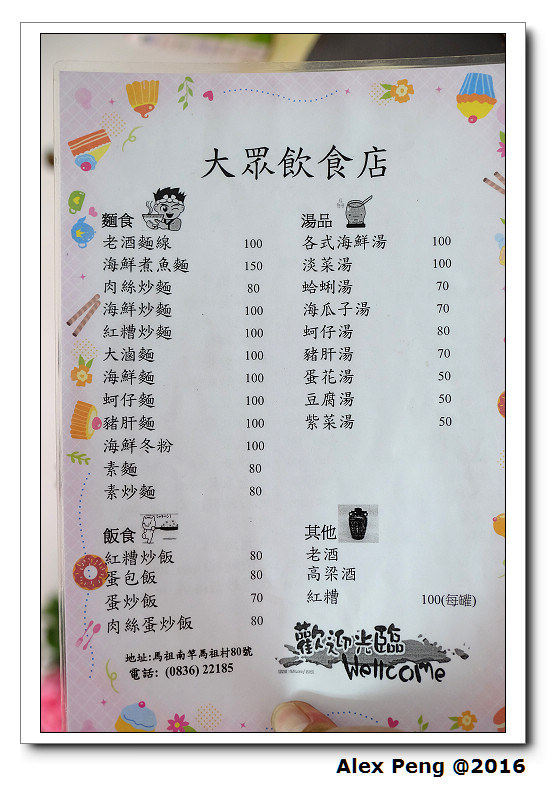 大眾飲食店
麵食
老酒麵線 100
海鮮煮魚麵 150
肉絲炒麵 80
海鮮炒麵 100
紅糟炒麵 100
大滷麵 100
海鮮麵 100
蚵仔麵 100
豬肝麵 100
海鮮冬粉 100
素麵 80
素炒麵 80
飯食
紅糟炒飯 80
蛋包飯 80
蛋炒飯 70
肉絲蛋炒飯 80
地址:馬祖南竿馬祖村80號
電話: (0836) 22185
湯品
各式海鮮湯 100
淡菜湯 100
蛤蜊湯 70
海瓜子湯 70
蚵仔湯 80
豬肝湯 70
蛋花湯 50
豆腐湯 50
紫菜湯 50
其他
老酒
高梁酒
紅糟 100(每罐)
歡迎光臨
Wellcome
Alex Peng @2016